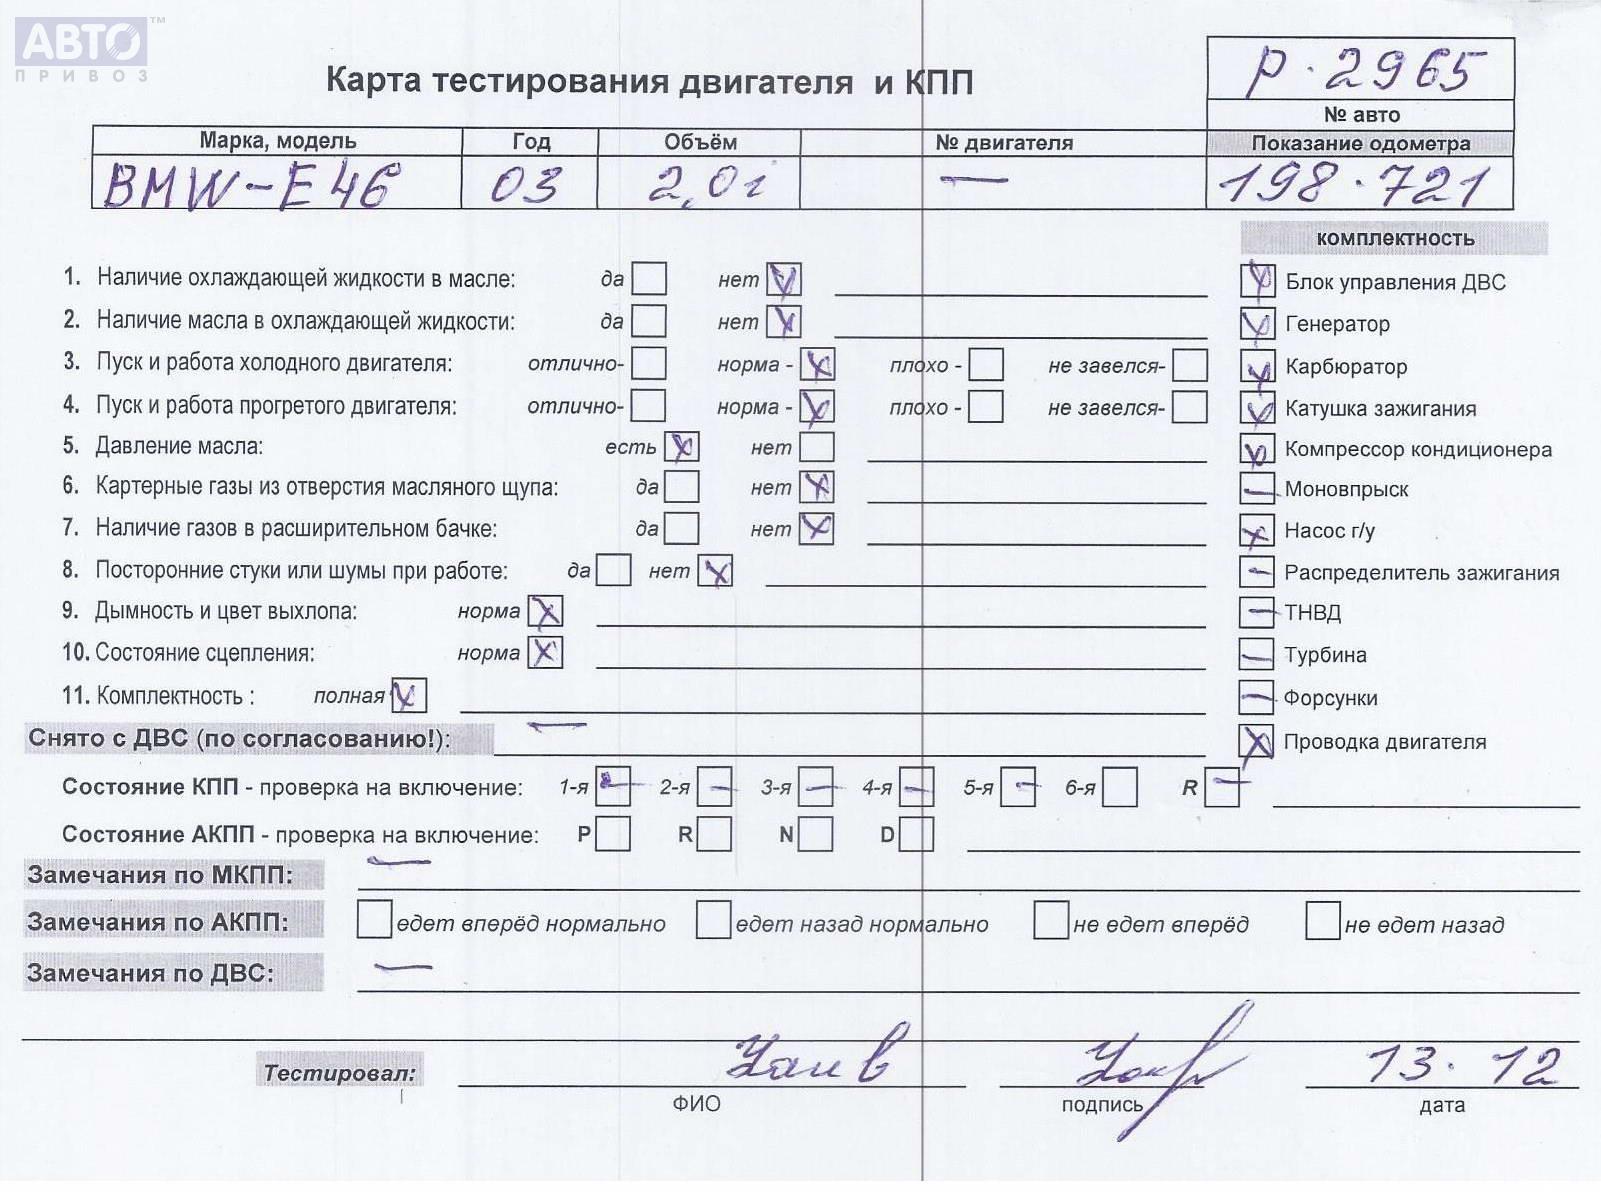 АВТО™
ПРИВОЗ
Карта тестирования двигателя и КПП
р·2965
№ авто
Марка, модель Год Объём № двигателя Показание одометра
BMW-E46 03 2,0i — 198·721
комплектность
1. Наличие охлаждающей жидкости в масле: да нет
2. Наличие масла в охлаждающей жидкости: да нет
3. Пуск и работа холодного двигателя: отлично- норма - плохо - не завелся-
4. Пуск и работа прогретого двигателя: отлично- норма - плохо - не завелся-
5. Давление масла: есть нет
6. Картерные газы из отверстия масляного щупа: да нет
7. Наличие газов в расширительном бачке: да нет
8. Посторонние стуки или шумы при работе: да нет
9. Дымность и цвет выхлопа: норма
10. Состояние сцепления: норма
11. Комплектность : полная
Блок управления ДВС
Генератор
Карбюратор
Катушка зажигания
Компрессор кондиционера
Моновпрыск
Насос г/у
Распределитель зажигания
ТНВД
Турбина
Форсунки
Проводка двигателя
Снято с ДВС (по согласованию!): —
Состояние КПП - проверка на включение: 1-я 2-я 3-я 4-я 5-я 6-я R
Состояние АКПП - проверка на включение: P R N D
Замечания по МКПП: —
Замечания по АКПП: едет вперёд нормально едет назад нормально не едет вперёд не едет назад
Замечания по ДВС: —
Тестировал: 13.12
ФИО подпись дата